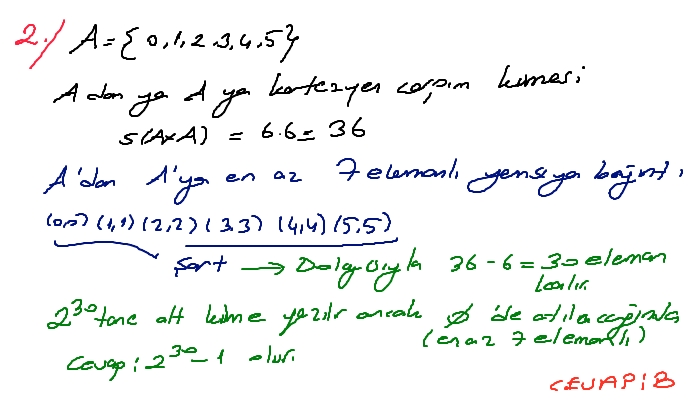 2.) A = {0,1,2,3,4,5}
A dan ya A ya kartezyen çarpım kümesi
s(AxA) = 6.6 = 36
A'dan A'ya en az 7 elemanlı yansıyan bağıntı,
(0,0) (1,1) (2,2) (3,3) (4,4) (5,5)
Şart → Dolayısıyla 36 - 6 = 30 eleman
kalır.
2^30 tane alt küme yazılır ancak ∅ 'de atılacağından
(en az 7 elemanlı)
Cevap: 2^30 - 1 olur.
CEVAP: B